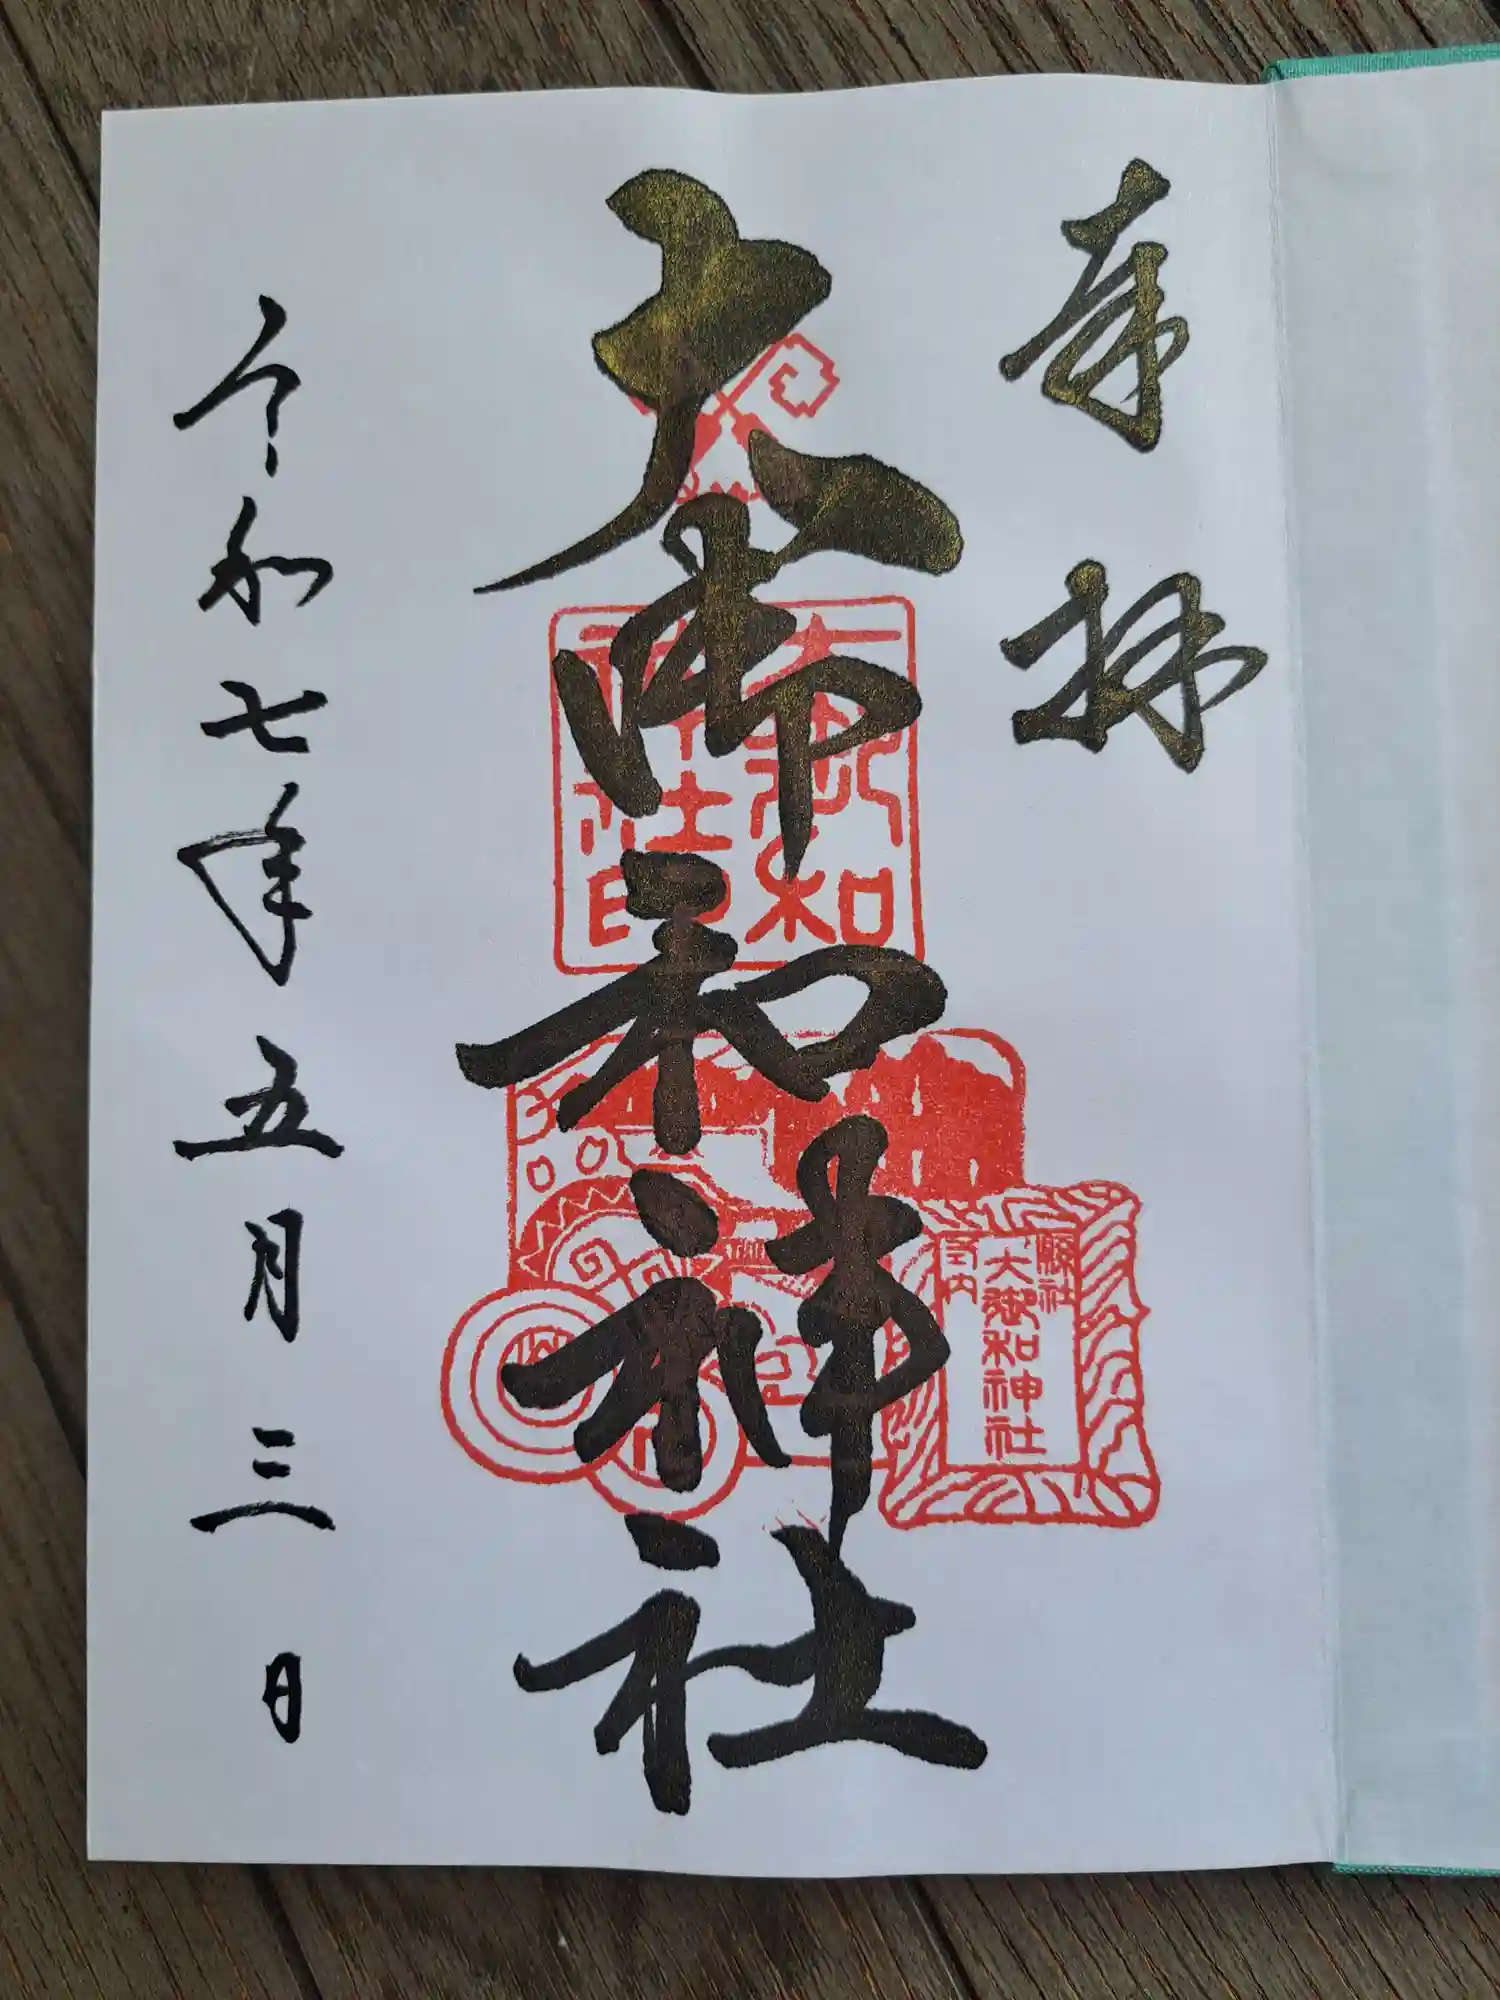 奉拝
大御和神社
大御和神社印
縣社
大御和神社
令和七年五月三日